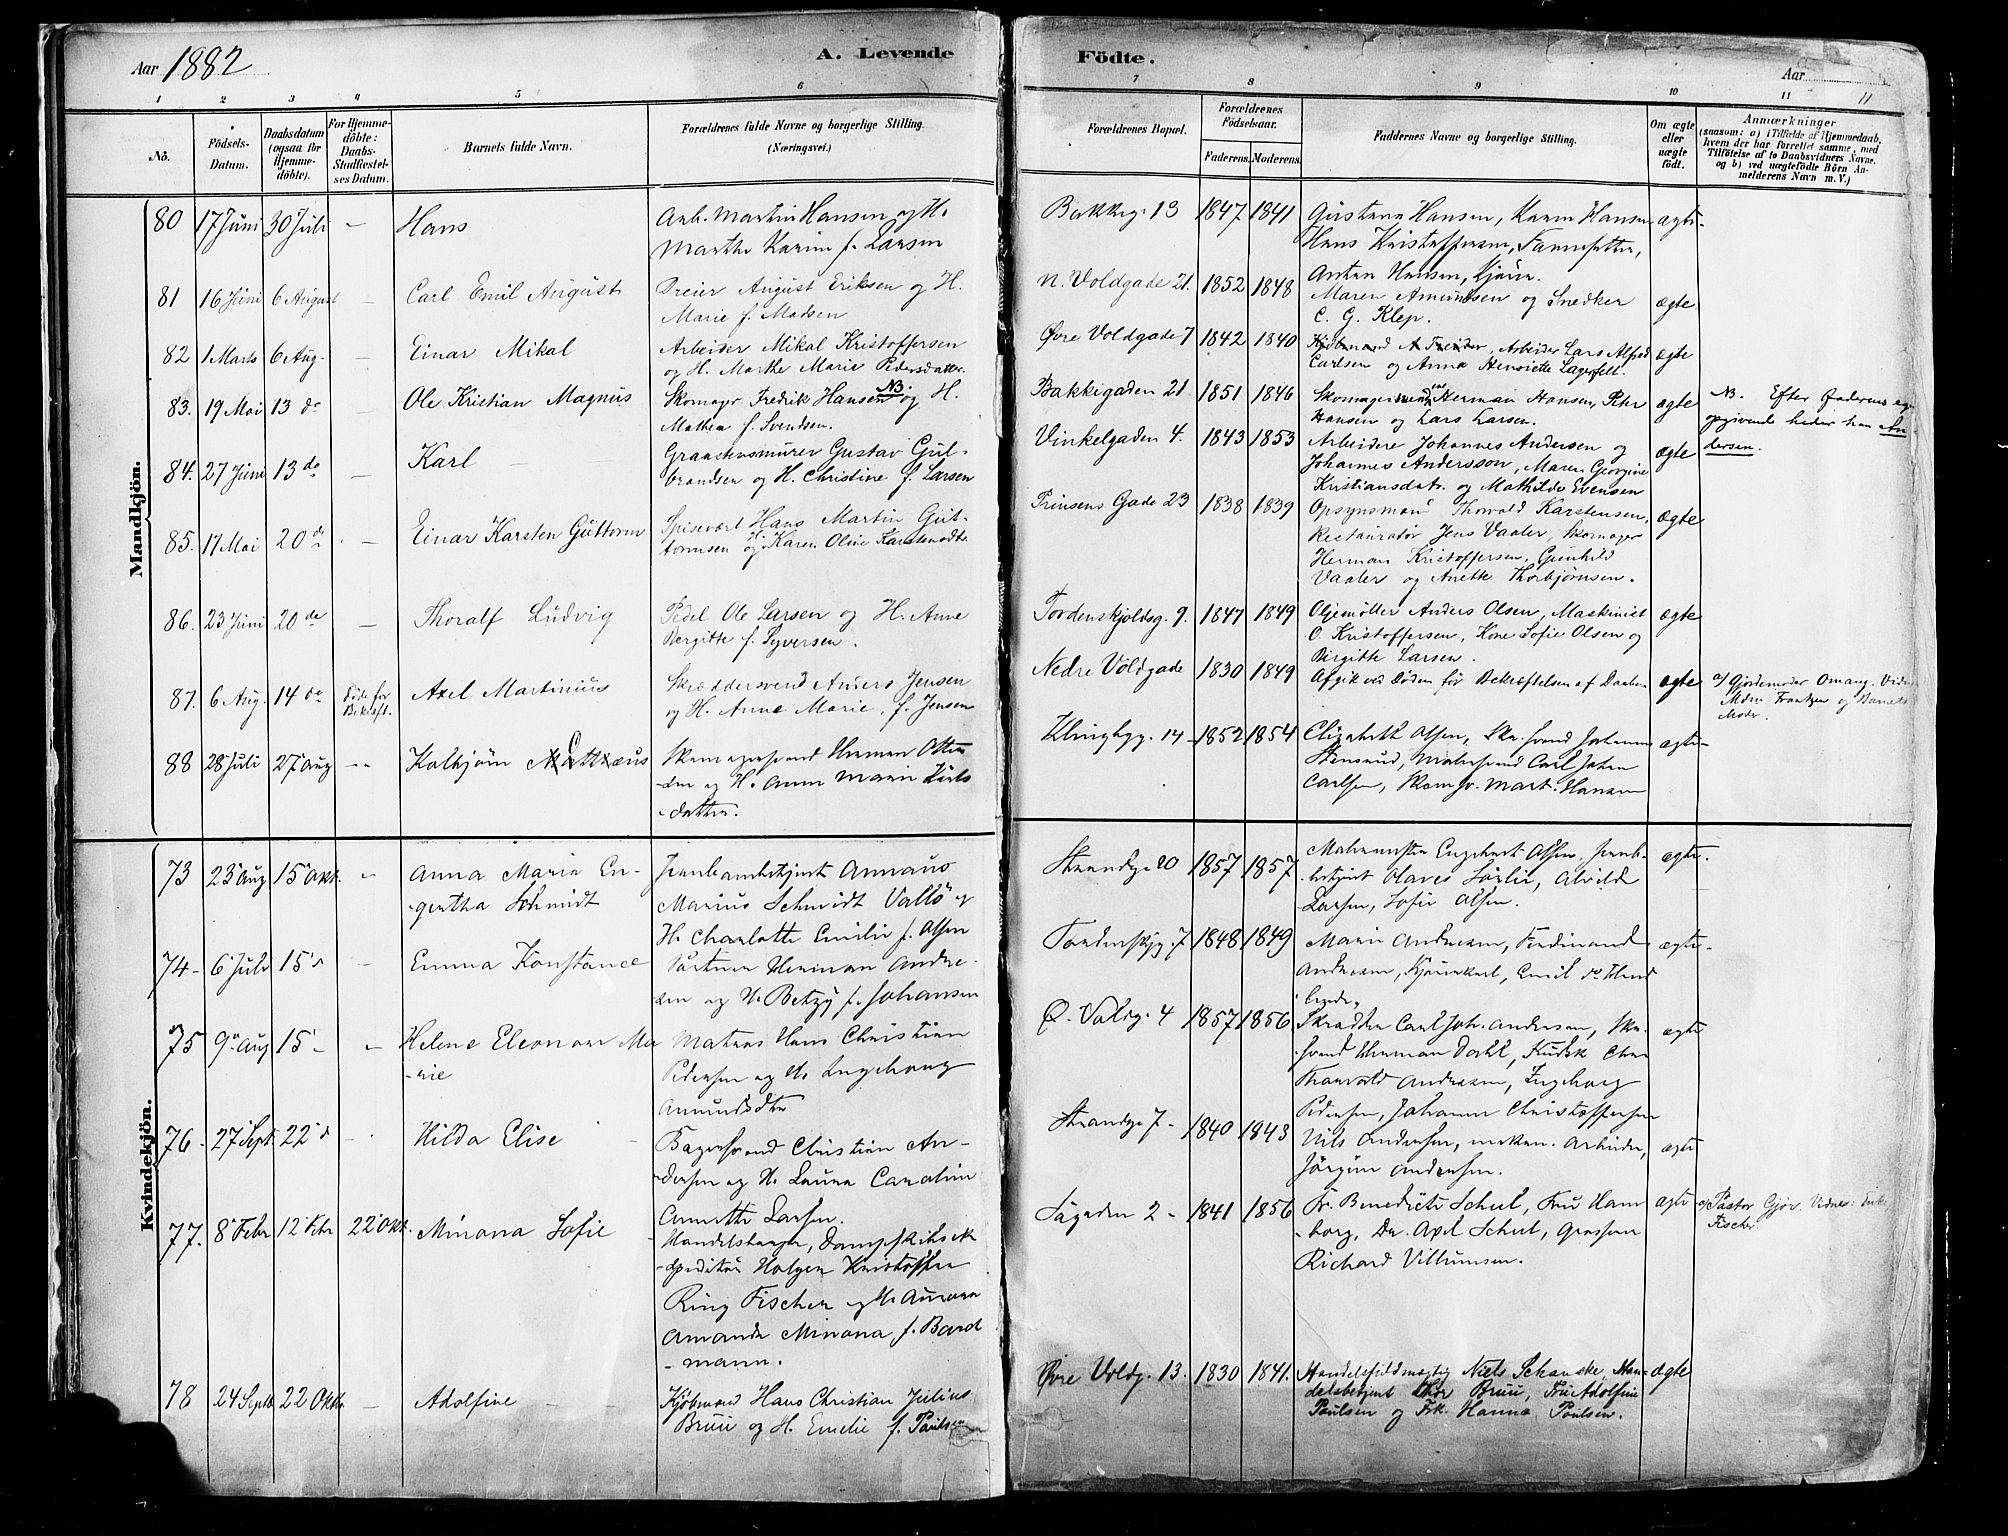 Aar 1882
A. Levende
1 2 3 4 5 6
No.
Födsels-
Datum.
Daabsdatum
(ogsaa for
Hjemme-
döbte).
For Hjemme-
döbte:
Daabs-
Stadfæstel-
ses Datum.
Barnets fulde Navn.
Forældrenes fulde Navne og borgerlige Stilling.
(Næringsvei.)
Mandkjön.
80 17 Juni 30 Juli — Hans
Arb. Martin Hansen og H.
Marthe Karin f. Larsen
81 16 Juni 6 August — Carl Emil August
Dreier August Eriksen og H.
Marie f. Madsen
82 1 Marts 6 Aug. — Einar Mikal
Arbeider Mikal Kristoffersen
og H. Marthe Marie Pedersdatter.
83. 19 Mai 13 do — Ole Kristian Magnus
Skomager Fredrik Hansen NB. og H.
Mathea f. Svendsen.
84. 27 Juni 13 do — Karl
Graastensmurer Gustav Gul-
brandsen og H. Christine f. Larsen
85. 17 Mai 20 do — Einar Karsten Guttorm
Spisevært Hans Martin Gut-
tormsen og H. Karen Oline Karstensdtr.
86. 23 Juni 20 do — Thoralf Ludvig
Pedel Ole Larsen og H. Anne
Bergitte f. Syversen.
87. 6 Aug. 14 do Døde før
Bekræft. Axel Martinius
Skræddersvend Anders Jensen
og H. Anne Marie, f. Jensen
88 28 Juli 27 Aug — Kolbjörn Mathæus
Skomagersvend Herman Otter
-sen og H. Anne Marie Niels
-datter.
Kvindekjön.
73 23 Aug 15 Okt. — Anna Maria En-
-gertha Schmidt
Jernbanebetjent Annæus
Marius Schmidt Vallö og
H. Charlotte Emilie f. Olsen
74- 6 Juli 15 d — Emma Konstance
Gartner Herman Andre-
sen og H. Betzy f. Johansen
75 9 Aug 15 — — Helene Eleonore Ma
-rie
Matros Hans Christian
Pedersen og H. Ingeborg
Amundsdtr
76 - 27 Sept. 22 d — Hilda Elise
Bagersvend Christian An-
dersen og H. Laura Caroline
Annette Larsen.
77. 8 Febr 12 22 Okt. Minona Sofie
Handelsborger, Dampskibsek
-speditör Holger Kristoffer
Ring Fischer og H. Aurora
Amanda Minona f. Bord
-mann.
78 24 Septb 22 Oktbr. — Adolfine
Kjöbmand Hans Christian Julius
Bruu og H. Emelie f. Paulsen
Födte.
Aar
7 8 9 10 11
11
Forældrenes Bopæl.
Forældrenes
Födselsaar.
Faderens. Moderens.
Faddernes Navne og borgerlige Stilling.
Om ægte
eller
uægte
födt.
Anmærkninger
(saasom: a) i Tilfælde af Hjemmedaab,
hvem der har forrettet samme, med
Tilföielse af to Daabsvidners Navne.
og b) ved uægtefödte Börn An-
melderens Navn m. V.)
Bakkeg. 13 1847 1841 Gustava Hansen, Karen Hansen ægte-
Hans Kristoffersen,
Anton Hansen,
N. Voldgade 21. 1852 1848 Maren Amundsen og Snedker ægte.
C. G. Klep.
Øvre Voldgade 7 1842 1840 Arbeider Lars Alfred ægte
Carlsen og Anna Henriette Lagerfelt.
Bakkegaden 21 1851 1846 Skomagersvend Herman Hansen, Peter ægte
Hansen og Lars Larsen.
NB. Efter Faderens eget
opgivende heder han An-
dersen.
Vinkelgaden 4. 1843 1853 Arbeidere Johannes Andersen og ægte
Johannes Andersson, Maren Georgine
Kristiansdatr. og Mathilde Evensen
Prinsens Gade 23 1838 1839 Opsynsmand Thorvald Karstensen, ægte
Restauratør Jens Vaaler, Skomager
Herman Kristoffersen, Gunhild
Vaaler og Anette Thorbjørnsen.
Tordenskjoldsg. 9. 1847 1849 Oljemøller Anders Olsen, Maskinist ægte
O. Kristoffersen, Kone Sofie Olsen og
Birgitte Larsen.
Nedre Voldgade 1830 1849 Afgik ved Døden før Bekræftelsen af Daaben ægte
a/ Gjordemoder Omang. Vidner
Mdm Frantzen og Barnets
Moder.
Klingbgg. 14 - 1852 1854 Elizabeth Olsen, Sko.svend Johannes ægte-
Stensrud, Malersvend Carl Johan
Carlsen, Skomsv. Mart. Hansen
Strandg. 20 1857 1857 Malermester Engebert Olsen, Jernb- ægte.
-betjent Olaves Sörlie, Alvilde
Larsen, Sofie Olsen.
Tordenskjg. 7 1848 1849 Marie Andresen, Ferdinand ægte-
Andresen, Kjörekarl, Emil
Ø. Voldg. 4 1857 1856 Skrædder Carl Joh. Andersen, Sko- ægte
svend Herman Dahl, Kudsk Chr.
Thorvald Andresen, Ingeborg
Pedersen, Johanne Christoffersen
Strandg. 7 - 1840 1843 Nils Andersen, mekan. Arbeider, ægte
Jörgine Andersen.
Søgaden 2 - 1841 1856 Fr. Benedicte Schul, Fru Ham ægte
-borg, Dr. Axel Schul, Grosserer
Richard Villumsen.
a/ Pastor Gjör. Vidner: Enke
Fischer
Øvre Voldg. 13. 1830 1841. Handelsfuldmægtig Niels Schanske, Han- ægte
delsbetjent Thor Bruu, Fru Adolfine
Poulsen og Frk. Hanna Poulsen.